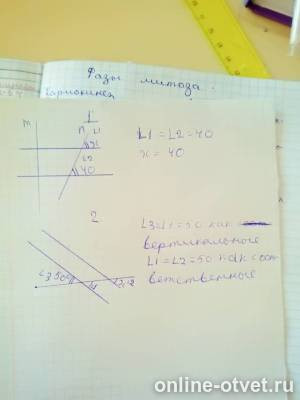 Фазы митоза:
Кариокинез
1
m
n
L1
x
L2
40
L1 = L2 = 40
x = 40
2
L3 = L1 = 50 как
вертикальные
L1 = L2 = 50 как соот
ветственные
L3 50
L1
L2
online-otvet.ru